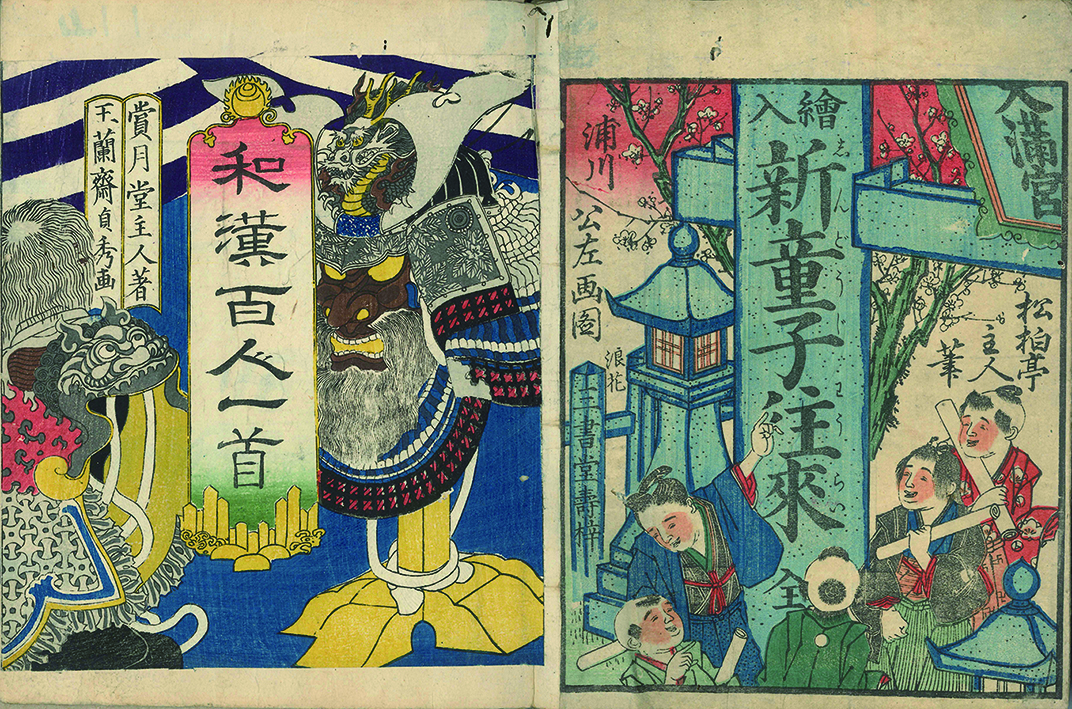 天滿宮
松柏亭
主人
筆
繪入
新童子往來 全
しんどうじわうらい
浦川公左画圖
浪花
書堂壽梓
和漢百人一首
賞月堂主人著
玉蘭齋貞秀画